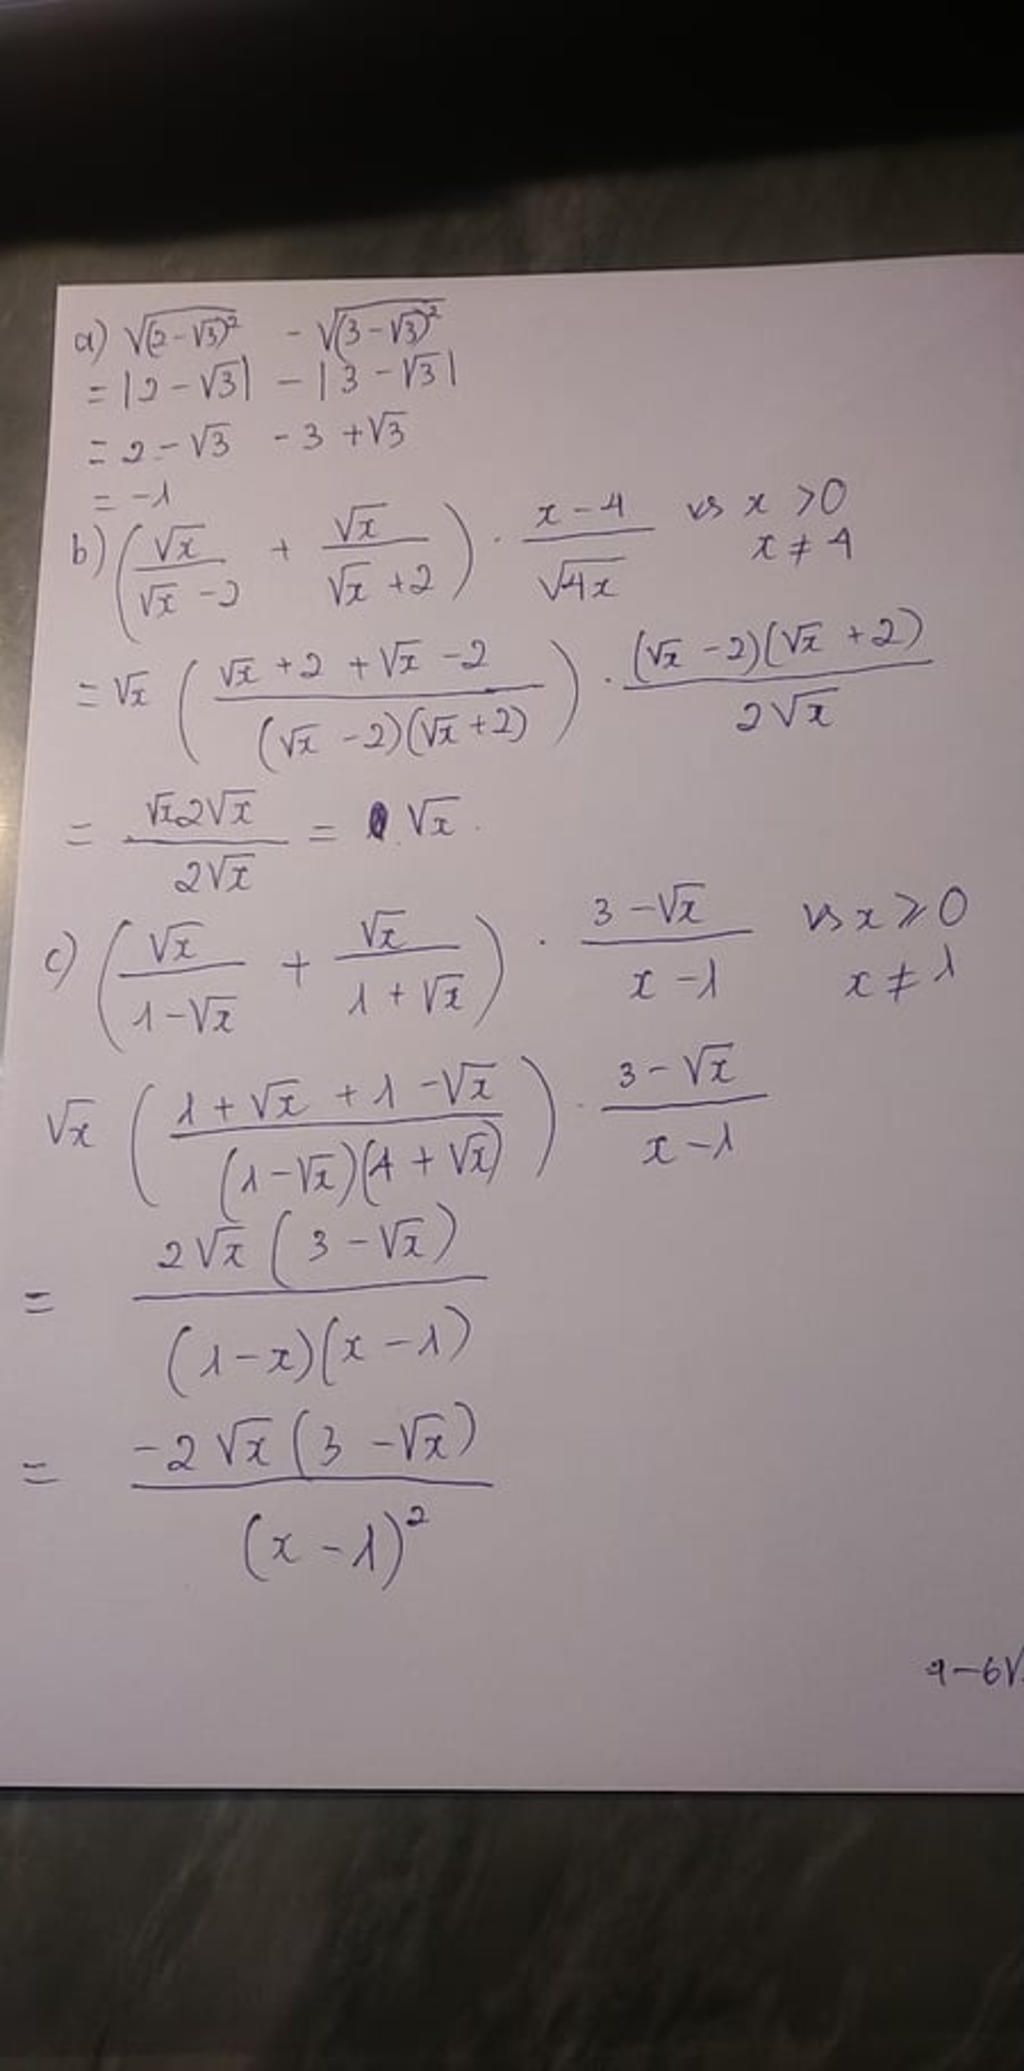 a) √(2-√3)² - √(3-√3)²
= |2-√3| - |3-√3|
= 2-√3 -3+√3
= -1
b) (√x/(√x-2) + √x/(√x+2)) · (x-4)/√4x vs x >0
x ≠ 4
= √x ((√x+2+√x-2)/((√x-2)(√x+2))) · ((√x-2)(√x+2))/(2√x)
= (√x2√x)/(2√x) = √x.
c) (√x/(1-√x) + √x/(1+√x)) · (3-√x)/(x-1) vs x ⩾ 0
x ≠ 1
√x ((1+√x+1-√x)/((1-√x)(1+√x))) · (3-√x)/(x-1)
= (2√x(3-√x))/((1-x)(x-1))
= (-2√x(3-√x))/(x-1)²
9-6√